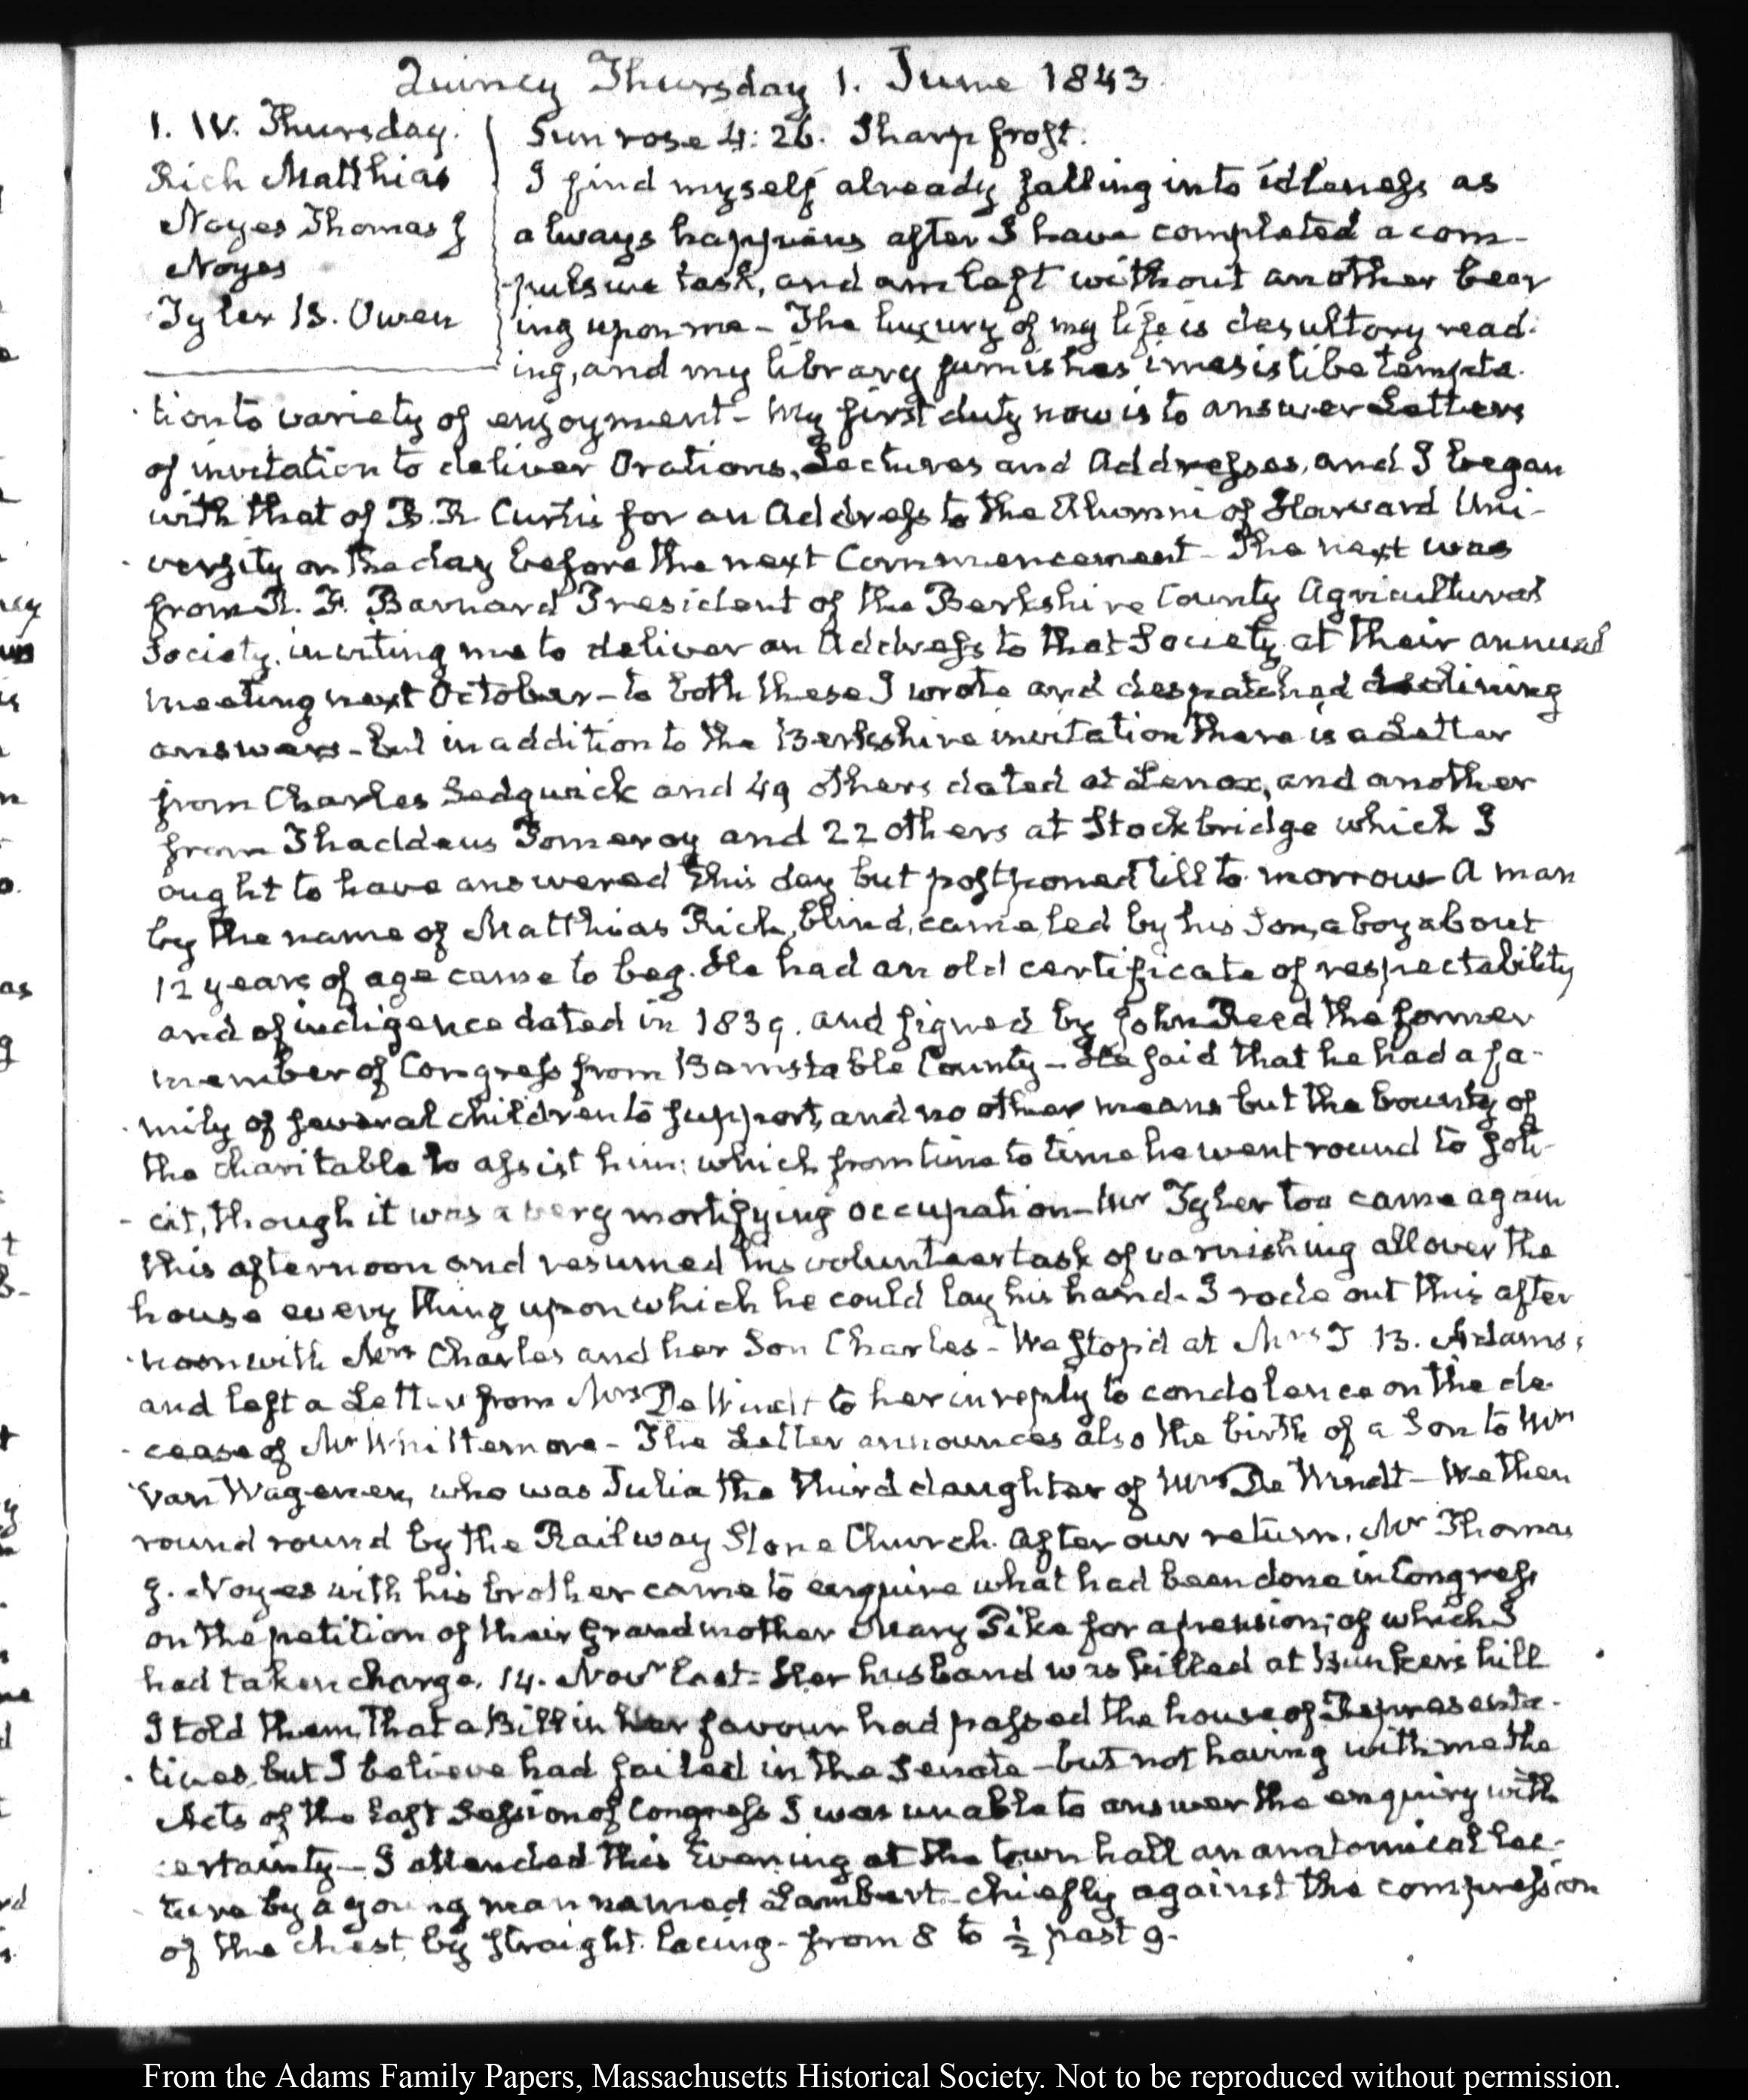 Quincy Thursday 1. June 1843.
1. IV. Thursday.
Rich Matthias
Noyes Thomas J
Noyes
Tyler B. Owen
Sun rose 4:26. Sharp frost.
I find myself already falling into idleness as
always happens after I have completed a com-
pulsive task, and am left without another bear
ing upon me – The luxury of my life is desultory read-
ing, and my library furnishes irresistible tempta-
tion to variety of enjoyment – My first duty now is to answer Letters
of invitation to deliver Orations, Lectures and Addresses, and I began
with that of B. R. Curtis for an Address to the Alumni of Harvard Uni-
versity on the day before the next Commencement – The next was
from R. F. Barnard President of the Berkshire County Agricultural
Society, inviting me to deliver an Address to that Society at their annual
meeting next October – to both these I wrote and despatched declining
answers – but in addition to the Berkshire invitation there is a Letter
from Charles Sedgwick and 49 others dated at Lenox, and another
from Thaddeus Pomeroy and 22 others at Stockbridge which I
ought to have answered this day but postponed till to-morrow – A man
by the name of Matthias Rich, blind, came led by his Son, a boy about
12 years of age came to beg. He had an old certificate of respectability
and of indigence dated in 1839. and signed by John Reed the former
member of Congress from Barnstable County – He said that he had a fa-
mily of several children to support, and no other means but the bounty of
the charitable to assist him; which from time to time he went round to soli-
cit, though it was a very mortifying occupation – Mr Tyler too came again
this afternoon and resumed his volunteer task of varnishing all over the
house every thing upon which he could lay his hand. I rode out this after
noon with Mrs Charles and her Son Charles – We stop'd at Mrs T B. Adams's
and left a Letter from Mrs De Windt to her in reply to condolence on the de-
cease of Mr Whittemore – The Letter announces also the birth of a Son to Mrs
Van Wagenen, who was Julia the third daughter of Mrs De Windt – We then
round round by the Railway Stone Church. After our return, Mr Thomas
J. Noyes with his brother came to enquire what had been done in Congress
on the petition of their Grandmother Mary Pike for a pension; of which I
had taken charge. 14. Novr last – Her husband was killed at Bunker's hill
I told them, that a Bill in her favour had passed the house of Representa-
tives, but I believe had failed in the Senate – but not having with me the
Acts of the last Session of Congress I was unable to answer the enquiry with
certainty – I attended this Evening at the town hall an anatomical lec-
ture by a young man named Lambert – chiefly against the compression
of the chest, by straight lacing – from 8 to ½ past 9.
From the Adams Family Papers, Massachusetts Historical Society. Not to be reproduced without permission.